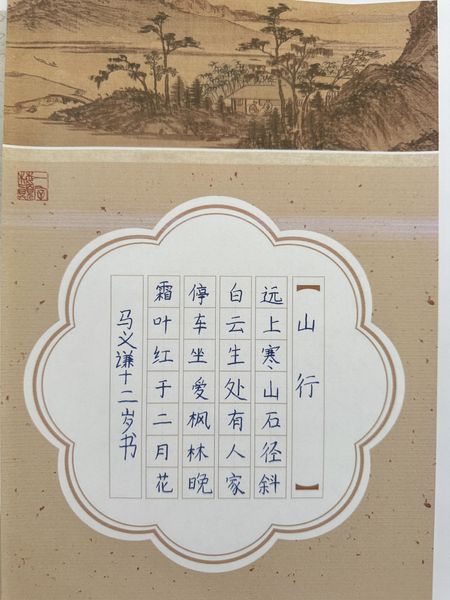 【山行】
远上寒山石径斜
白云生处有人家
停车坐爱枫林晚
霜叶红于二月花
马义谦十二岁书